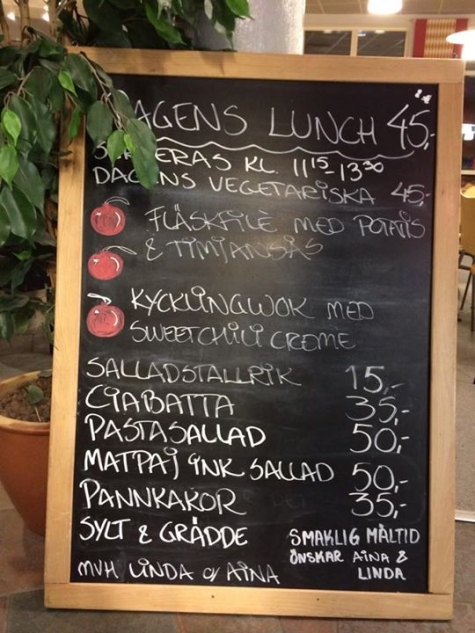 DAGENS LUNCH 45,-
SERVERAS KL. 1115-1330
DAGENS VEGETARISKA 45,-
FLÄSKFILÉ MED POTATIS
& TIMJANSÅS
KYCKLINGWOK MED
SWEETCHILI CREME
SALLADSTALLRIK 15,-
CIABATTA 35,-
PASTASALLAD 50,-
MATPAJ INK SALLAD 50,-
PANNKAKOR 35,-
SYLT & GRÄDDE
SMAKLIG MÅLTID
ÖNSKAR AINA &
LINDA
MVH LINDA O/ AINA